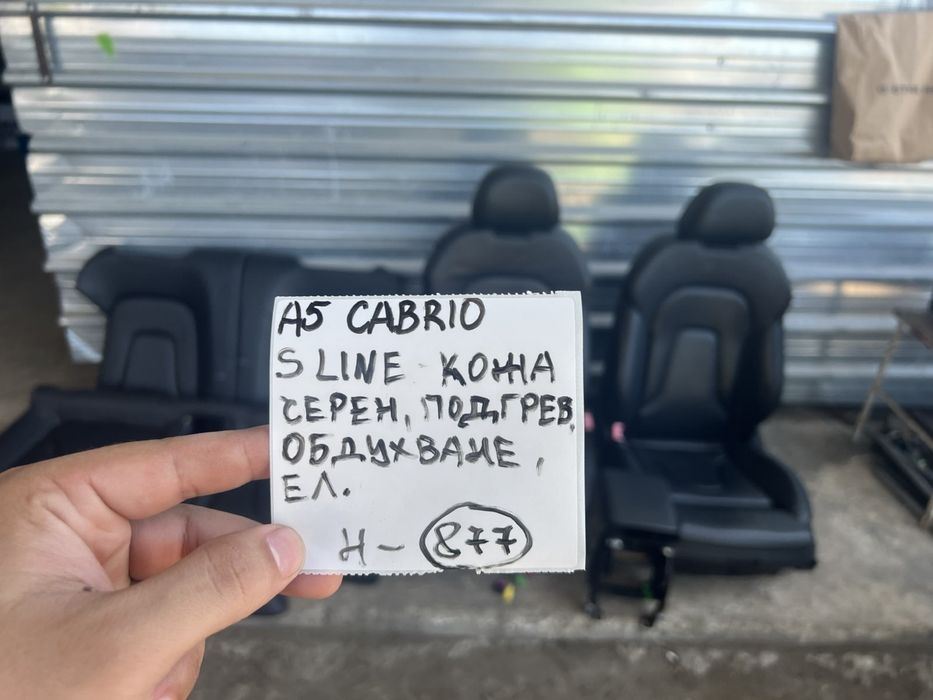 A5 CABRIO
S LINE КОЖА
ЧЕРЕН, ПОДГРЕВ,
ОБДУХВАНЕ,
ЕЛ.
Н- 877